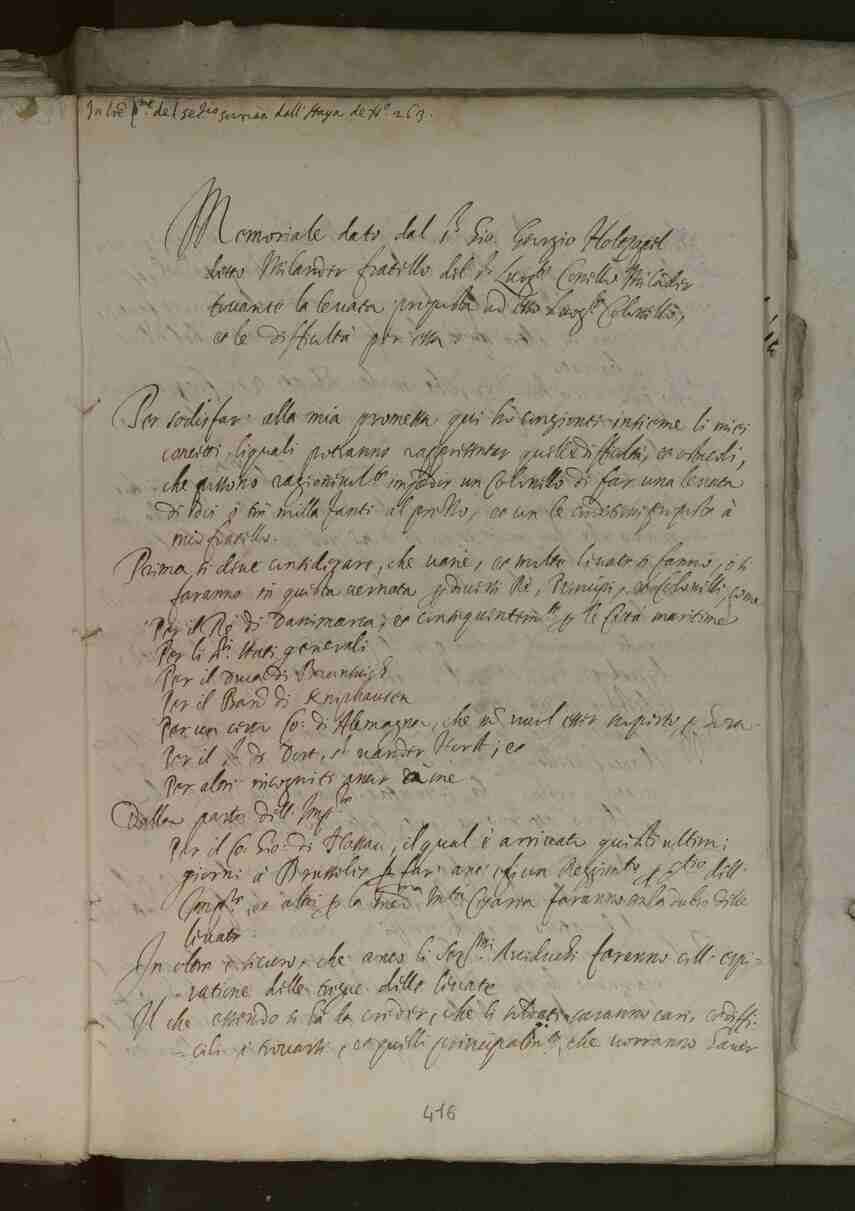 In lre del Surian dall'Haya de n.o 263.
Memoriale dato dal S.r Gio. Georgio Holtzapel
detto Milander fratello del S.r Luog.te Coonello Milander
toccante la levata proposta ad esso Luog.te Colonello,
et le difficultà per essa.
Per sodisfar alla mia promessa qui hò congionti insieme li miei
concetti, liquali potranno rappresentar quelle difficultà, et ostacoli,
che possono impedir un Colonello di far una levata
di doi ò trè milla fanti al presente, et con le conditioni proposte à
mio fratello.
Prima si deve considerare, che varie, et molte levate si fanno, ò si
faranno in questa vernata per diversi Rè, Principi, et Colonelli, come
Per il Rè di Danimarca, et conseguentem.te p le Città maritime
Per li S.ri Stati generali
Per il Duca di Brunswigh
Per il Baron di Knyphausen
Per un certo Co: di Alemagna, che nō vuol esser nominato
Per il S.r de Dort, et vander ; et
Per altri incogniti ancor da me
Dalla parte dell' Imp.re
Per il Co. Gio: di Nassau, il qual è arrivato questi ultimi
giorni à Brusseles p far anc un Reggim.to p dell'
Imp.re, et altri p la med.ma M.tà Cesarea faranno delle
levate.
In oltre è sicuro, che anco li Ser.mi Arciduchi faranno coll' espi-
ratione delle tregue delle levate
Il che essendo si hà da creder, che li soldati saranno cari, et diffi-
cili à trovarsi, et quelli principalm.te, che vorranno haver
416